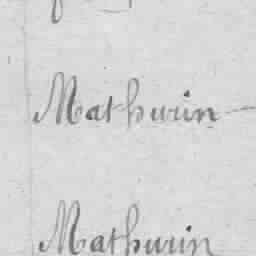 Mathurin
Mathurin